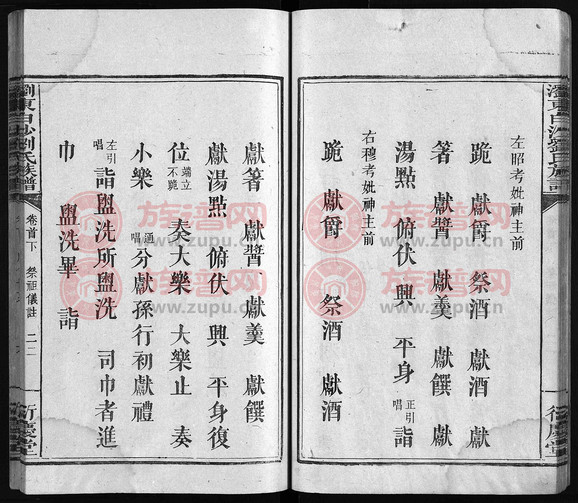 左昭考妣神主前
跪 獻爵 祭酒 獻酒 獻
箸 獻醬 獻羹 獻饌 獻
湯點 俯伏興 平身 正引唱 詣
右穆考妣神主前
跪 獻爵 祭酒 獻酒
瀏東白沙劉氏族譜
衍慶堂
獻箸 獻醬 獻羹 獻饌
獻湯點 俯伏 興 平身復
位 端立不跪 奏大樂 大樂止 奏
小樂 通唱 分獻孫行初獻禮
左引唱 詣盥洗所盥洗 司巾者進
巾 盥洗畢 詣
瀏東白沙劉氏族譜 卷首下 祭祖儀註 二二 衍慶堂
族谱网
www.zupu.cn
族谱网
www.zupu.cn
族谱网
www.zupu.cn
族谱网
www.zupu.cn